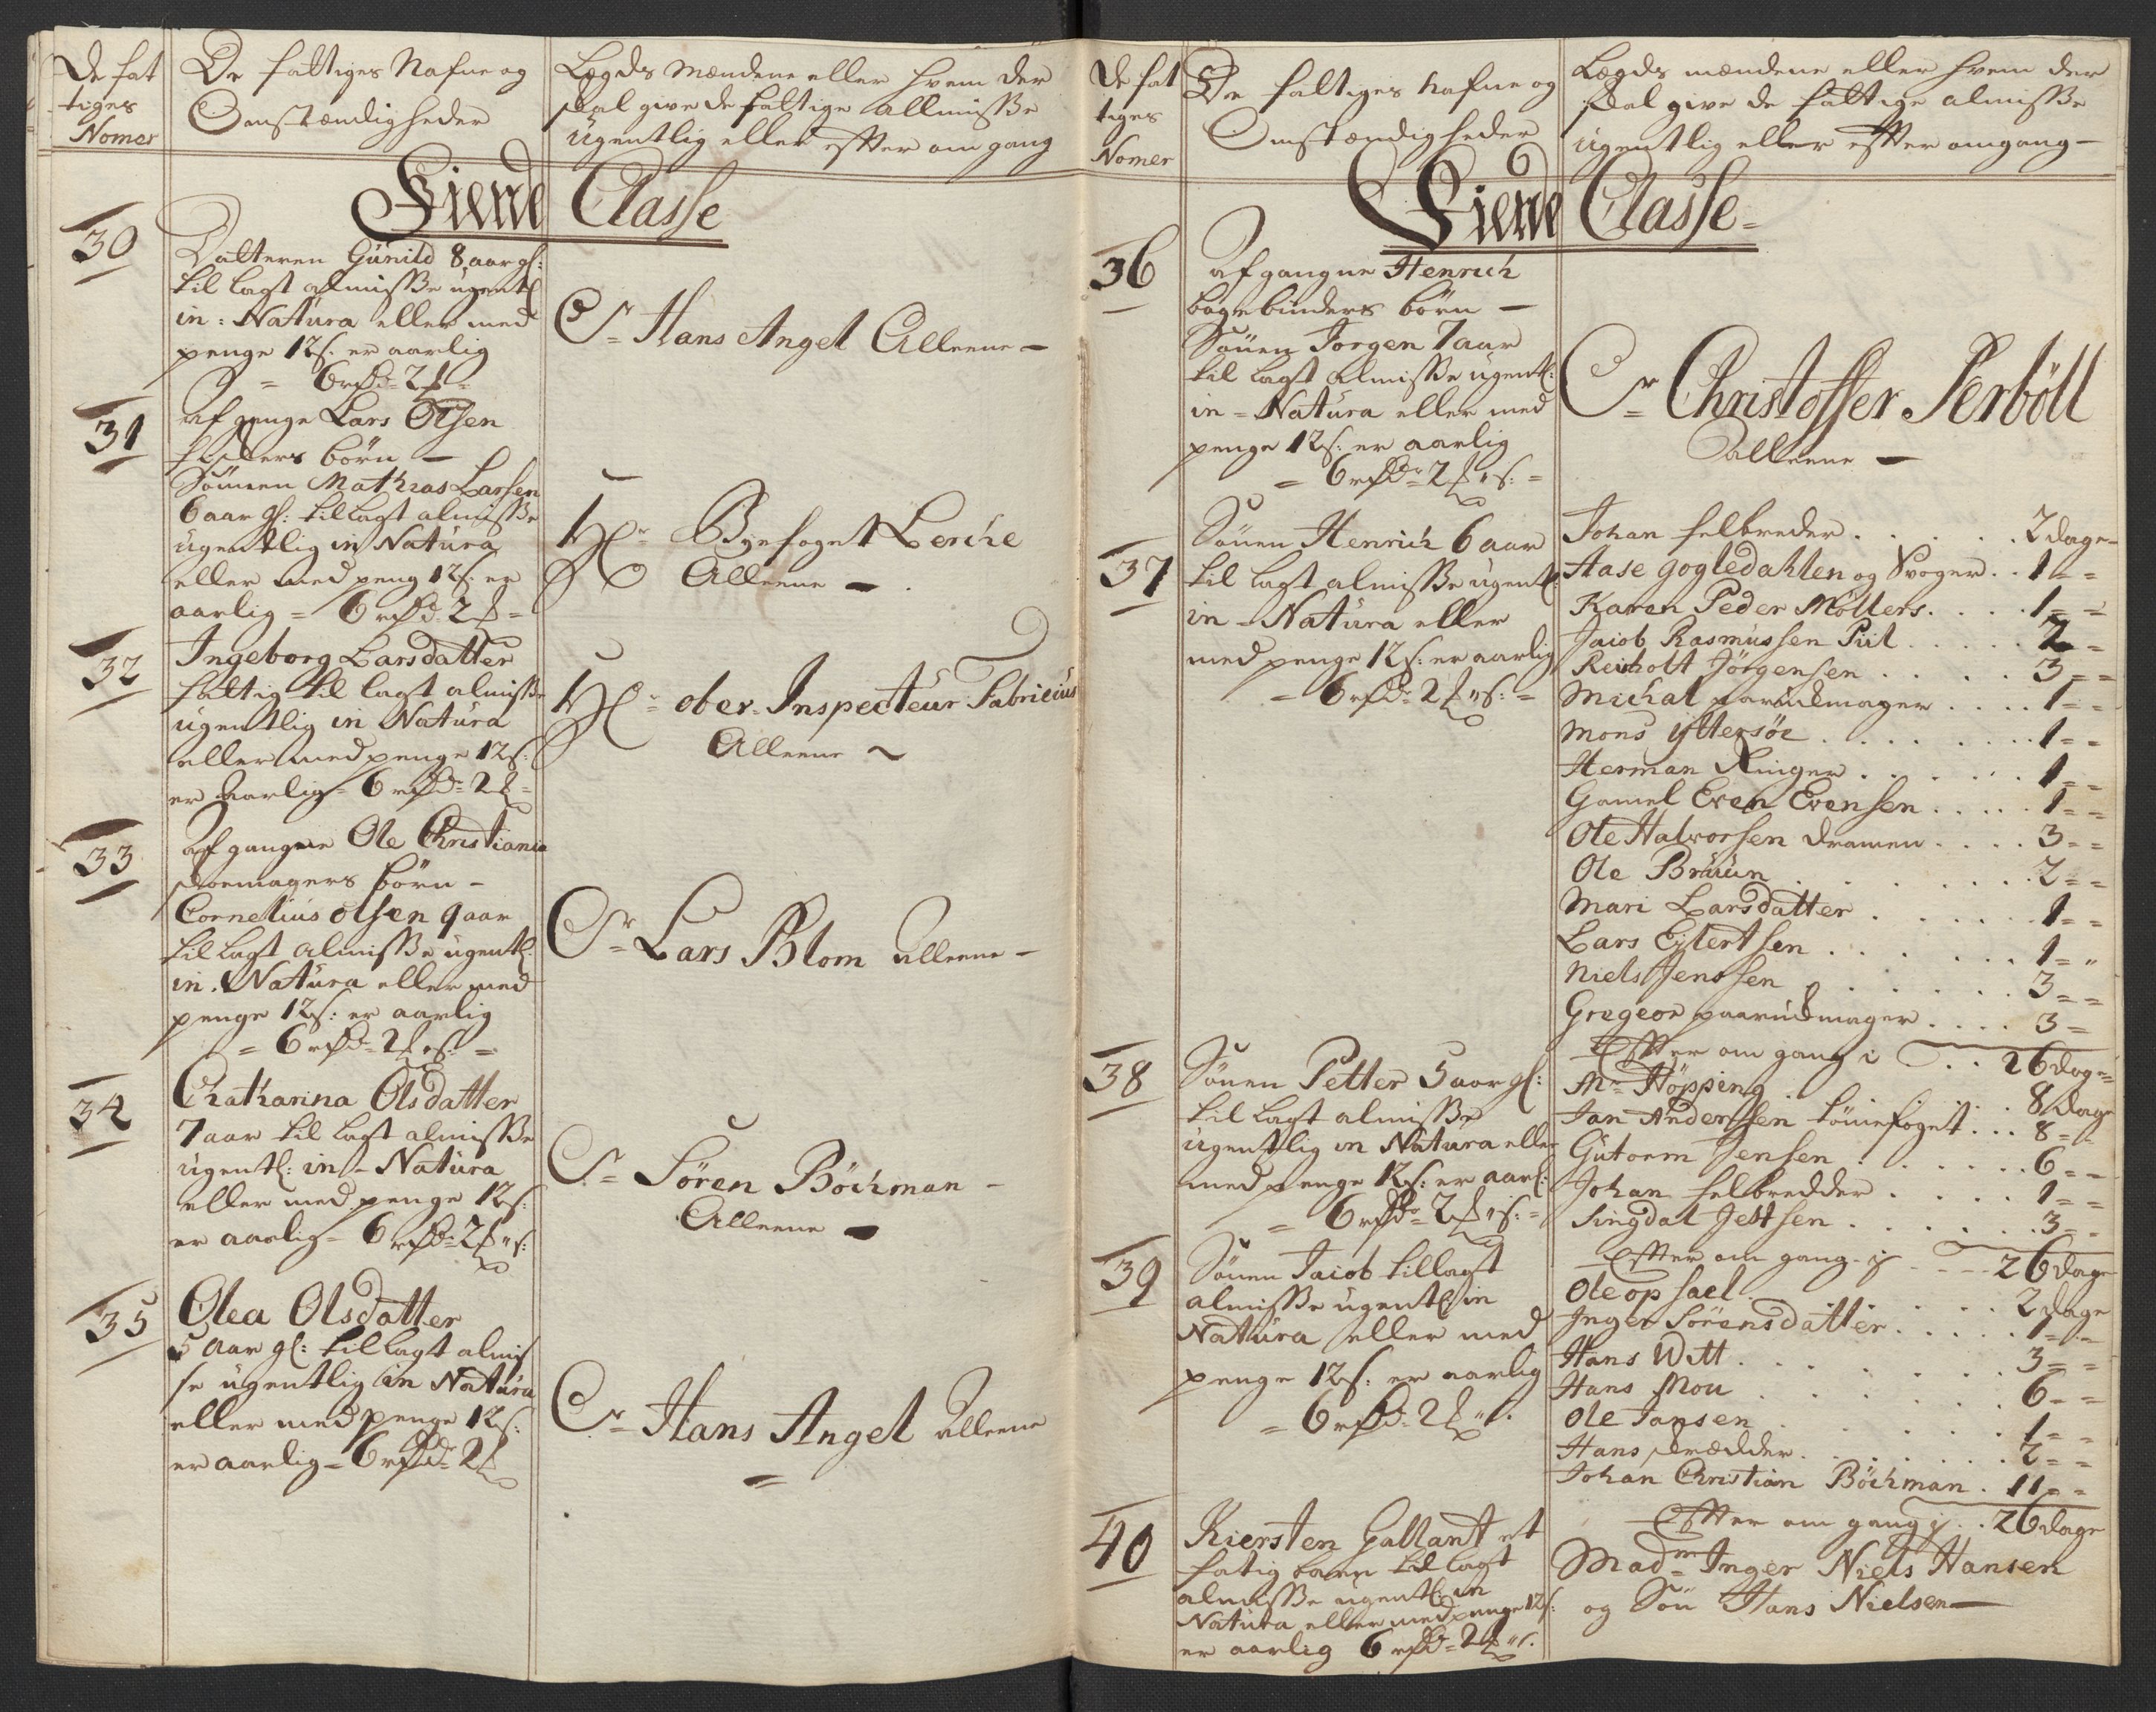 De fat
tiges
Nomer
De fattiges Nafne og
Omstændigheder
Lægds Mændene eller hvem der
skal give de fattige allmisse
ugentlig eller efter omgang
Fierde Classe
30
Datteren Gunild 8 aar gl:
til lagt almisse ugentl
in: Natura eller med
penge 12 s: er aarlig
= 6 rhd= 2 =
Sr Hans Angel Alleene —
31
afgange Lars Olsen
børn —
Sønnen Mathias Larsen
6 aar gl: tillagt almisse
ugentlig in Natura
eller med peng 12 s: er
aarlig = 6 rhd= 2 =
Hr Byefoget Lerche
Alleene —
32
Ingeborg Larsdatter
fattig til lagt almisse
ugentlig in Natura
eller med penge 12 s:
er aarlig = 6 rhd= 2 =
Hr ober-Inspecteur Fabricius
Alleene ~
33
afgangne Ole Christiania
skoemagers børn —
Cornelius olsen 9 aar
til lagt almisse ugentl:
in. Natura eller med
penge 12 s: er aarlig
= 6 rhd= 2 " s: =
Sr Lars Blom alleene —
34
Chatharina Olsdatter
7 aar til lagt almisse
ugentl: in - Natura
eller med penge 12 s:
er aarlig = 6 rhd= 2 " s:
Sr Sören Böchman —
Alleene —
35
Olea Olsdatter
5 aar gl: tillagt almis
se ugentlig in Natura
eller med penge 12 s:
er aarlig = 6 rhd= 2
Sr Hans Angel alleene
=
De fat
tiges
Nomer
De fattiges nafne og
Omstændigheder
Lægds mændene eller hvem der
skal give de fattige almisse
ugentlig eller efter omgang —
Fierde Classe =
36
afgangne Henrich
bogebinders børn —
Sönen Jorgen 7 aar
til lagt almisse ugentl:
in = Natura eller med
penge 12 s: er aarlig
= 6 rhd= 2 " s: =
Sr Christoffer Perböll
alleene —
37
Sönen Henrich 6 aar
til lagt almisse ugentl:
in - Natura eller
med penge 12 s: er aarlig
= 6 rhd= 2 " s: =
Johan felbreder . . . . . . 2 dage
Aase gogledahlen og Svoger . . 1 = =
Karen Peder Möllers . . . . 1 = =
Jacob Rasmussen Piil . . . . . 2 =
Reinholt Jörgensen . . . . . 3 = =
Michal parudmager . . . . 1 = =
Mons yttersöe . . . . . . . . 1 = =
Herman Ringer . . . . . . 1 = =
Gamel Even Evensen . . . . . 1 = =
Ole Halvorsen dramen . . . . 3 = =
Ole Bruun . . . . . . . . 2 = =
Mari Larsdatter . . . . . . 1 = =
Lars Eylertsen . . . . . . . 1 = "
Niels Jenssen . . . . . . . 3 = =
Gregeor paarudmager . . . . 3 =
Efter om gang i . . 26 dage
38
Sönen Petter 5 aar gl:
til lagt almisse
ugentlig in Natura eller
med penge 12 s: er aarl:
= 6 rhd= 2 " s: =
Mr Höpping . . . . . . 8 dage
Jan Anderssen foget . . . 8 = =
Gutorm Jensen . . . . . . 6 = =
Johan felbredder . . . . . 1 = =
Singdal Jettsen . . . . . . . 3 =
Efter om gang - - - 26 dage
39
Sönen Jacob tillagt
almisse ugentl in
Natura eller med
penge 12 s: er aarlig
= 6 rhd= 2 " s.
Ole opsael . . . . . . . . 2 dage
Inger Sörensdatter . . . . . 1 = =
Hans Witt . . . . . . . . 3 = =
Hans Mou . . . . . . . . 6 = =
Ole Jansen . . . . . . . . 1 = =
Hans skrædder . . . . . . . 2 = =
Johan Christian Böchman . 11 = =
Efter om gang . . 26 dage
40
Kiersten Gallant et
fatig barn til lagt
almisse ugentl: in
Natura eller med penge 12 s:
er aarlig 6 rhd= 2 " s.
Madm Inger Niels Hansen
og Sön Hans Nielsen —